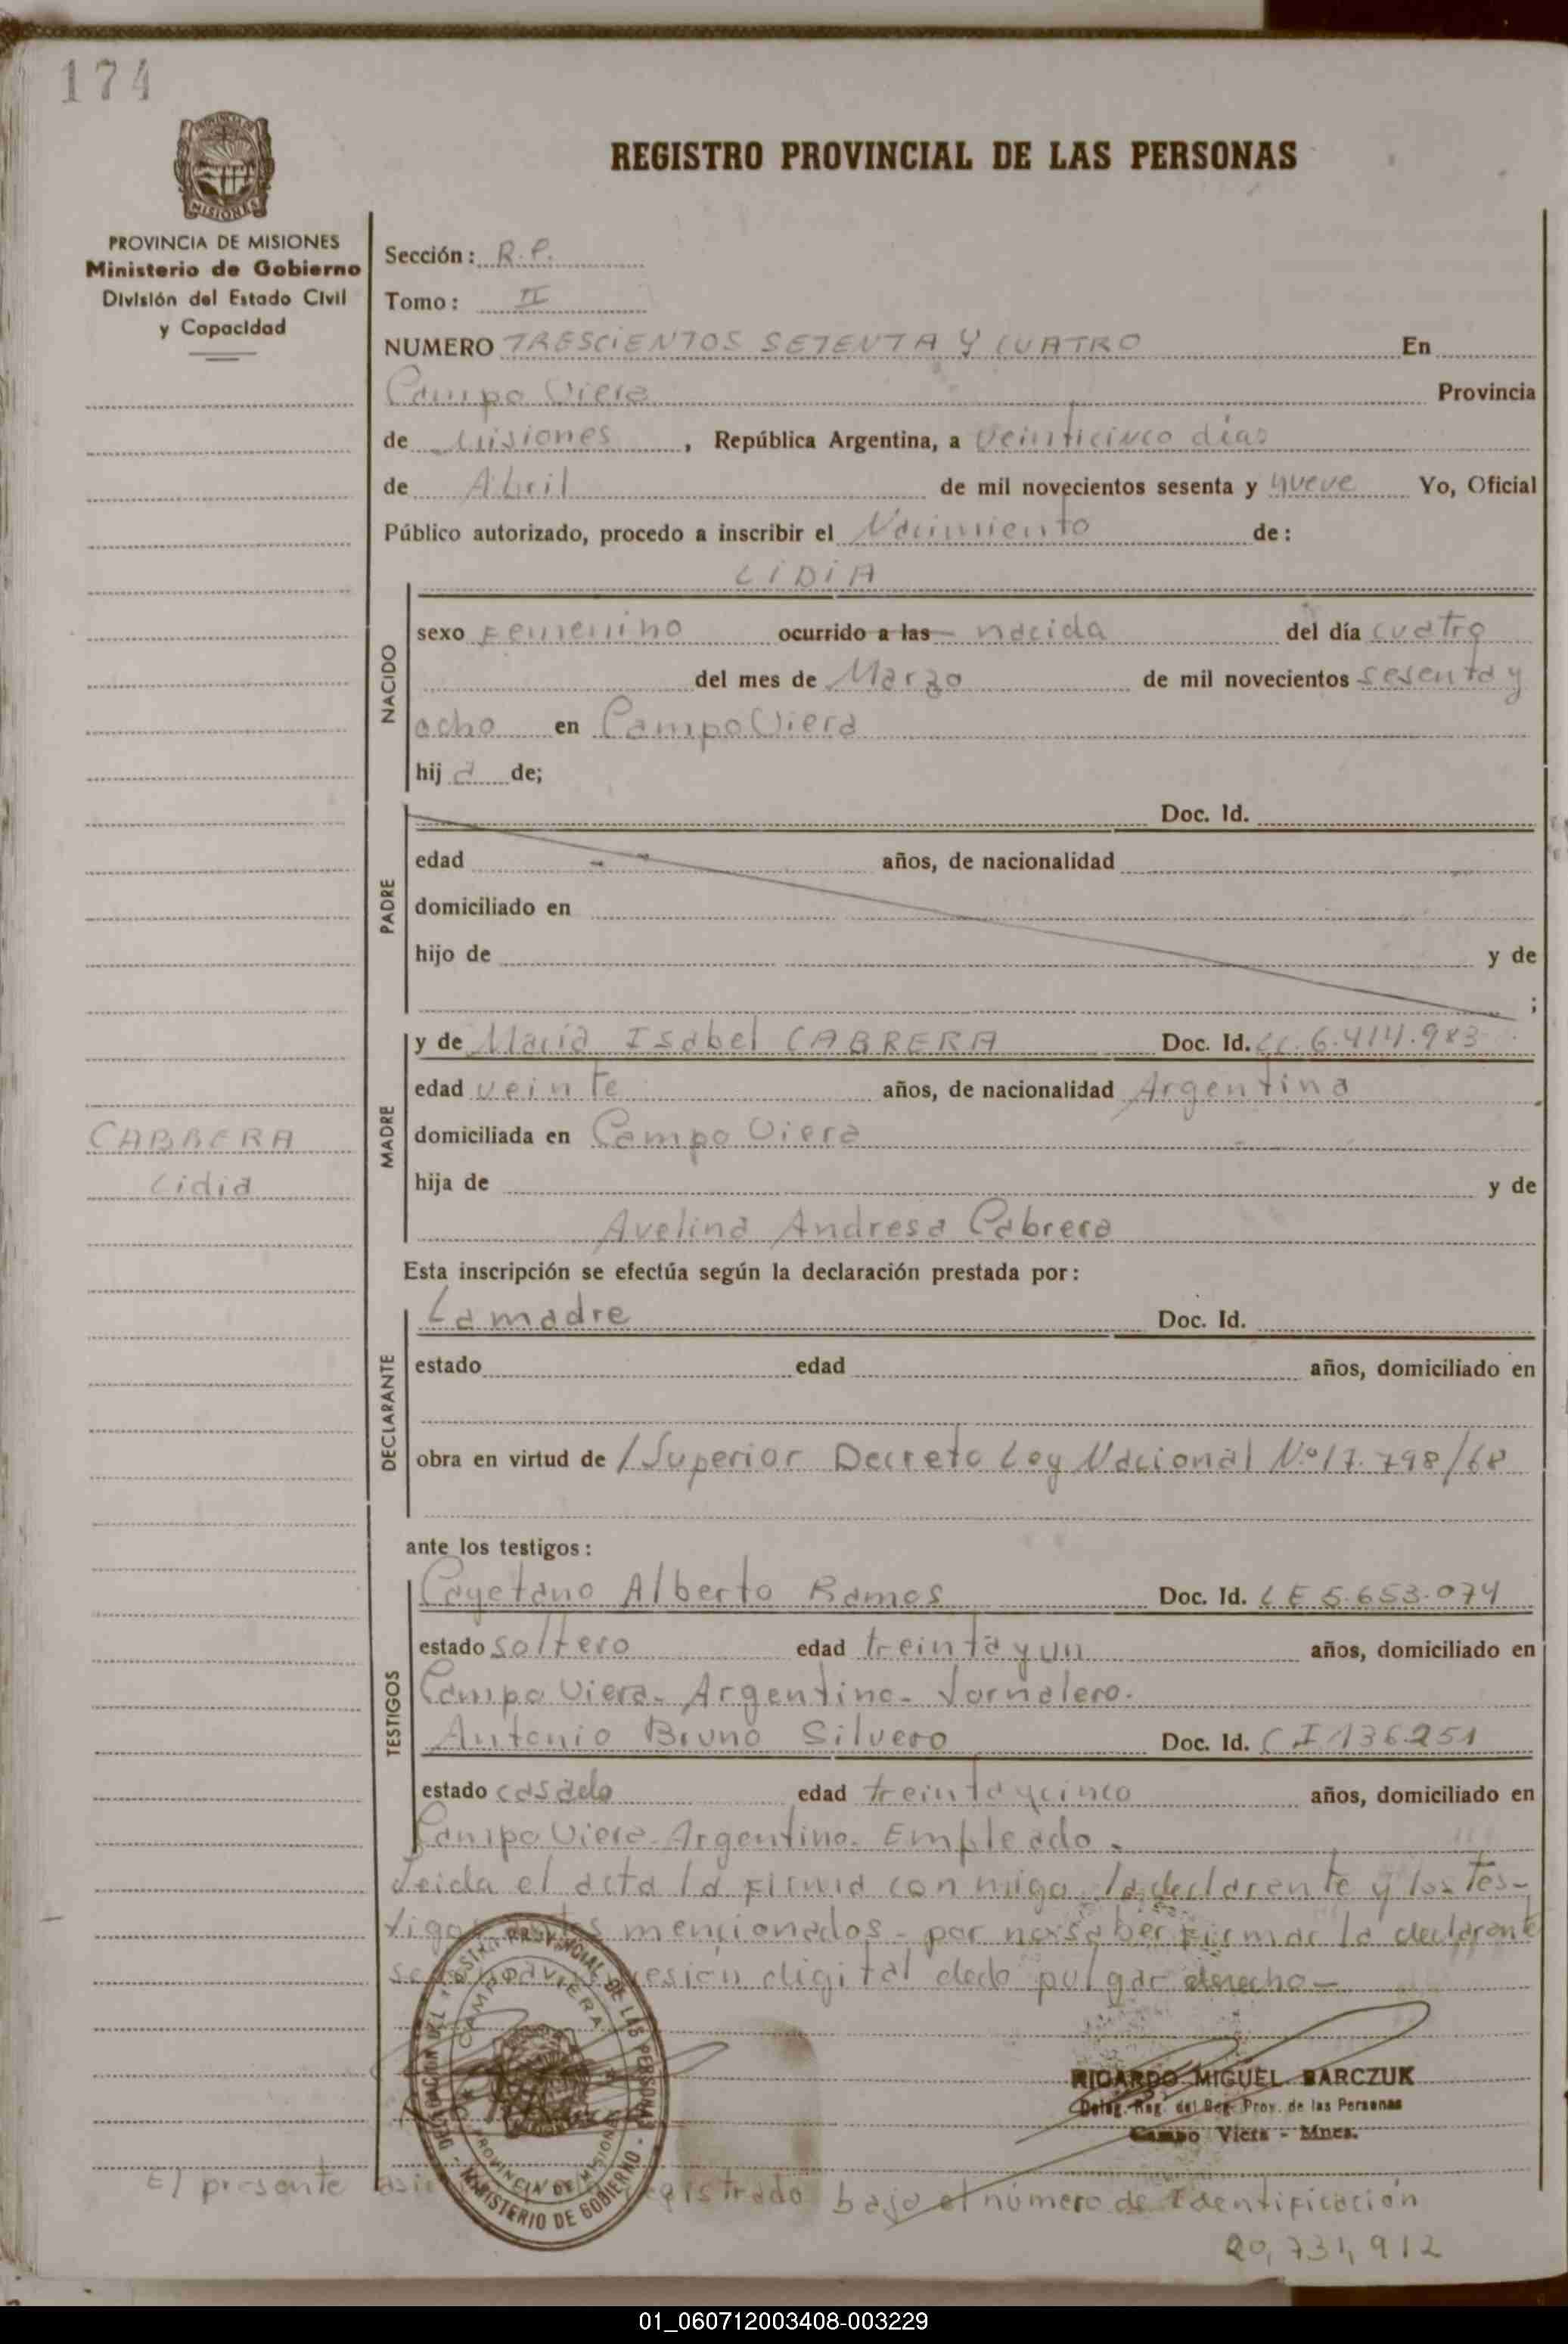 174
REGISTRO PROVINCIAL DE LAS PERSONAS
MISIONES
PROVINCIA DE MISIONES
Ministerio de Gobierno
División del Estado Civil
y Capacidad
Sección: R.P.
Tomo: II
NUMERO TRESCIENTOS SETENTA Y CUATRO En
Campo Viera Provincia
de Misiones, República Argentina, a veinticinco días
de Abril de mil novecientos sesenta y nueve Yo, Oficial
Público autorizado, procedo a inscribir el Nacimiento de:
LIDIA
NACIDO
sexo Femenino ocurrido a las nacida del día cuatro
del mes de Marzo de mil novecientos sesenta y
ocho en Campo Viera
hija de;
PADRE
Doc. Id.
edad años, de nacionalidad
domiciliado en
hijo de y de
;
MADRE
y de María Isabel CABRERA Doc. Id. LC. 6.414.983
edad veinte años, de nacionalidad Argentina
domiciliada en Campo Viera
hija de y de
Avelina Andresa Cabrera
CABRERA
Lidia
Esta inscripción se efectúa según la declaración prestada por:
DECLARANTE
La madre Doc. Id.
estado edad años, domiciliado en
obra en virtud de / Superior Decreto Ley Nacional Nº 17.798/68
ante los testigos:
TESTIGOS
Cayetano Alberto Ramos Doc. Id. LE 5.653.074
estado soltero edad treinta y un años, domiciliado en
Campo Viera- Argentino- Jornalero.
Antonio Bruno Silvero Doc. Id. CI 136251
estado casado edad treinta y cinco años, domiciliado en
Campo Viera- Argentino. Empleado.
Leida el acta la firma con migo la declarante y los tes-
tigos mencionados- por no saber firmar la declarante
digital dedo pulgar derecho-
DELEGACION DEL REGISTRO PROVINCIAL DE LAS PERSONAS
CAMPO VIERA
PROVINCIA DE MISIONES
MINISTERIO DE GOBIERNO
RICARDO MIGUEL BARCZUK
Deleg. Reg. del Reg. Prov. de las Personas
Campo Viera - Mnes.
El presente registrado bajo el número de Identificación
20,731,912
01_060712003408-003229